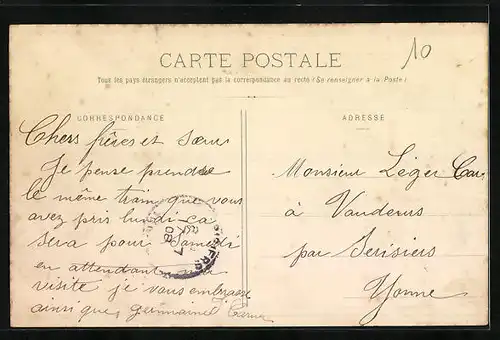 CARTE POSTALE
10
Tous les pays étrangers n'acceptent pas la correspondance au recto (Se renseigner à la Poste)
CORRESPONDANCE
Chers frères et sœur
Je pense prendre
le même train que vous
avez pris lundi. Ça
sera pour Samedi
en attendant
visite je vous embrasse
ainsi que germaine
ADRESSE
Monsieur Léger
à Vaudeurs
par Cerisiers
Yonne